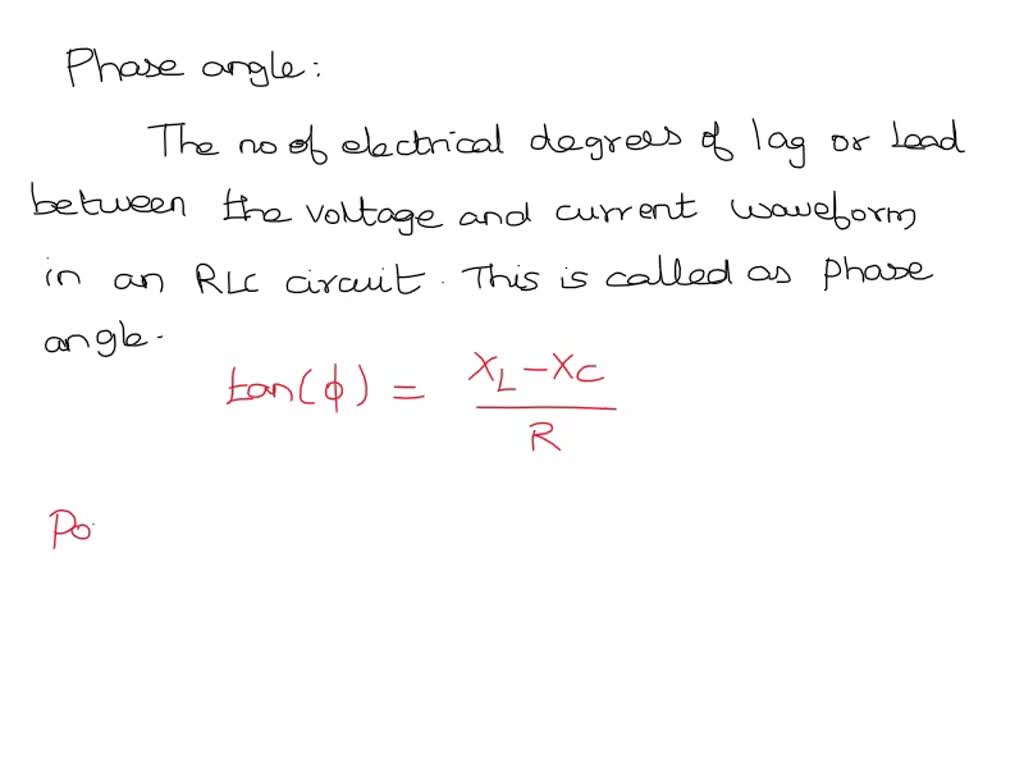 Phase angle:
The no of electrical degrees of lag or lead
between the voltage and current waveform
in an RLC circuit. This is called as phase
angle.
tan(ϕ) = X_L - X_C / R
Po